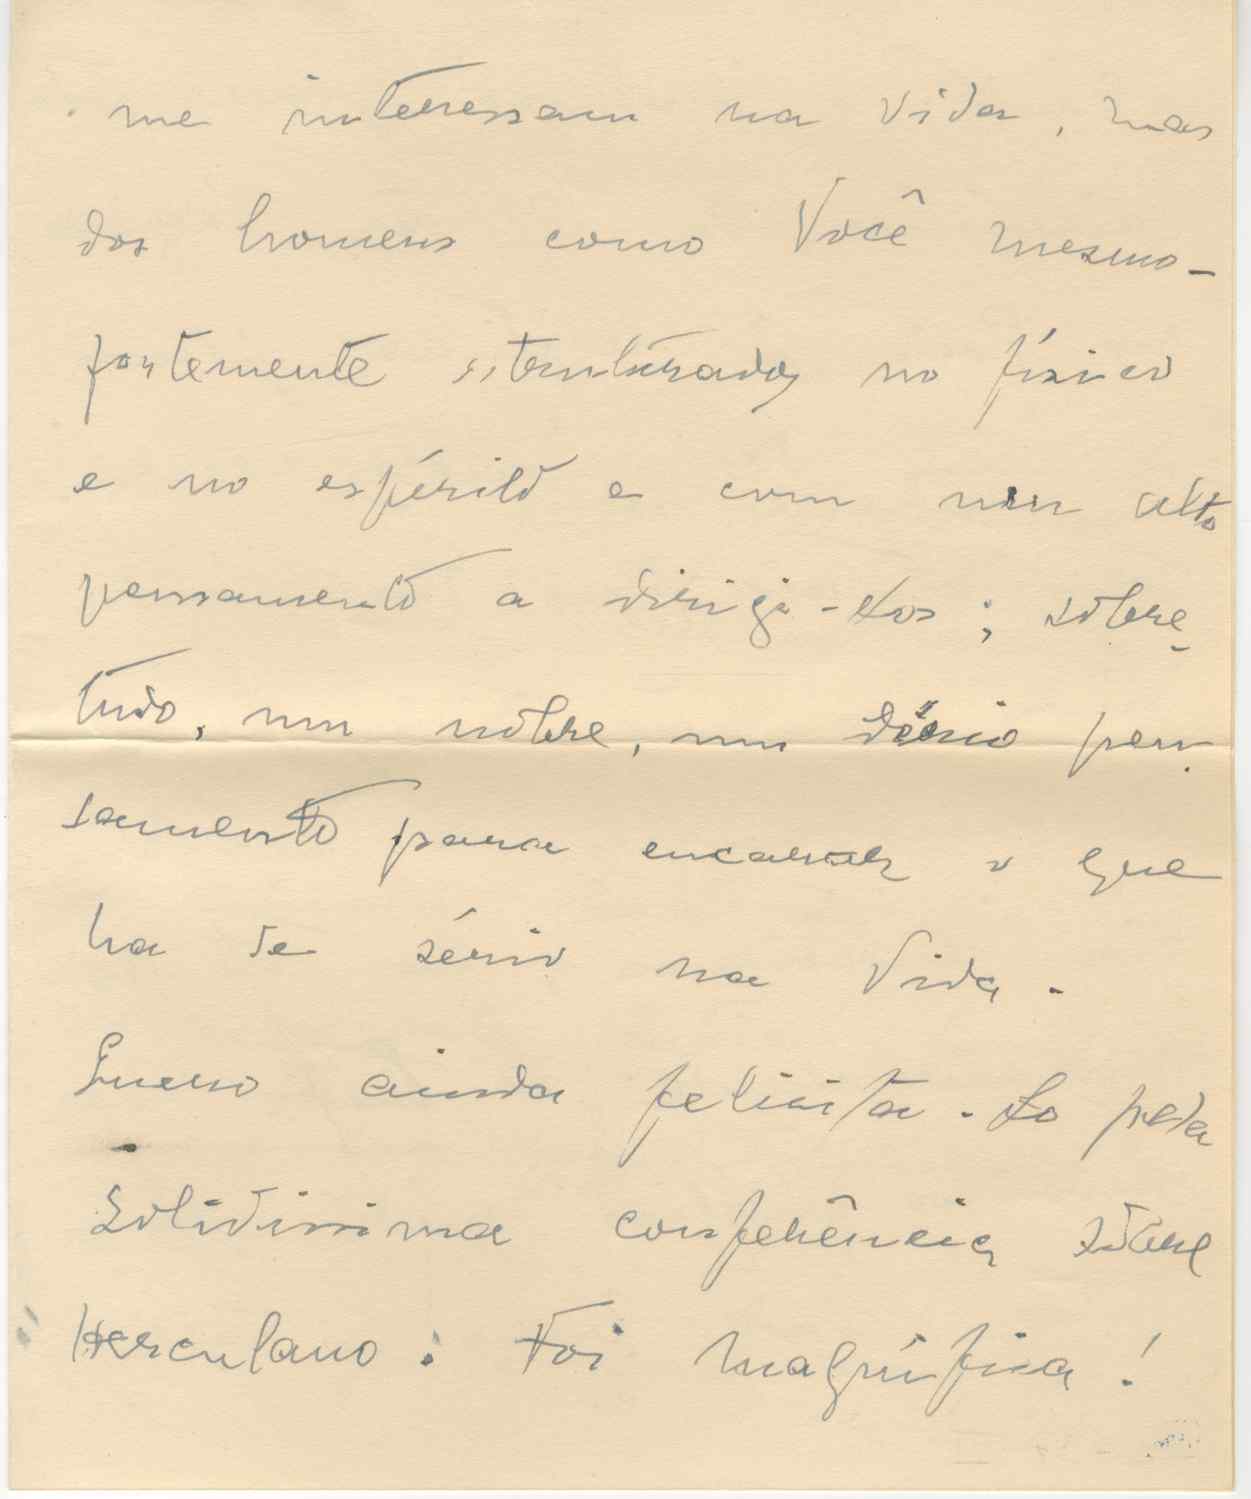 me interessam na vida, mas
dos homens como Você mesmo -
fortemente estruturados no físico
e no espírito e com um alto
pensamento a dirigi-los; sôbre-
tudo, um nobre, um sério pen-
samento para encarar o que
ha de sério na Vida.
Quero ainda felicita-lo pela
solidissima conferência sôbre
Herculano: Foi magnífica!